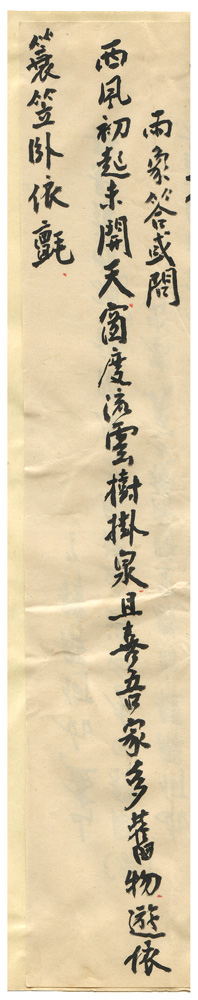 雨象答或問
西風初起未開天窗度流雲樹掛泉且喜吾家多舊物遊依
簑笠臥依氈